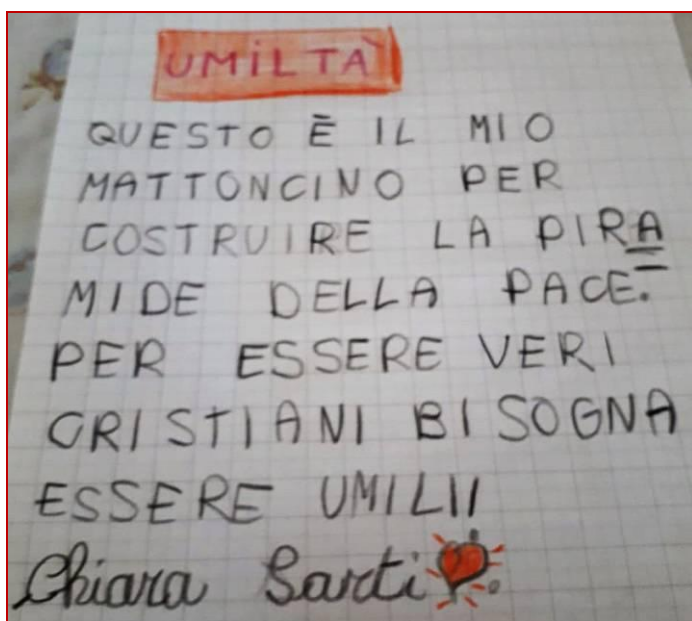 UMILTÀ
QUESTO È IL MIO
MATTONCINO PER
COSTRUIRE LA PIRA
MIDE DELLA PACE.
PER ESSERE VERI
CRISTIANI BISOGNA
ESSERE UMILII
Chiara Sarti